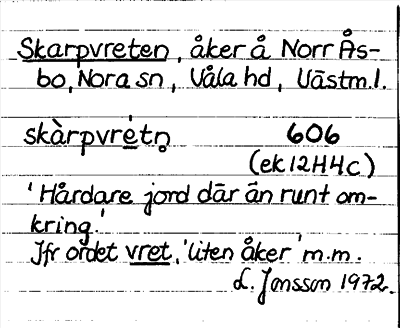 Skarpvreten, åker å Norr Ås-
bo, Nora sn, Våla hd, Västm.l.
skàrpvre̊́tn̥ 606
(ek 12H4c)
'Hårdare jord där än runt om-
kring.'
Jfr ordet vret, 'liten åker' m.m.
L. Jonsson 1972.